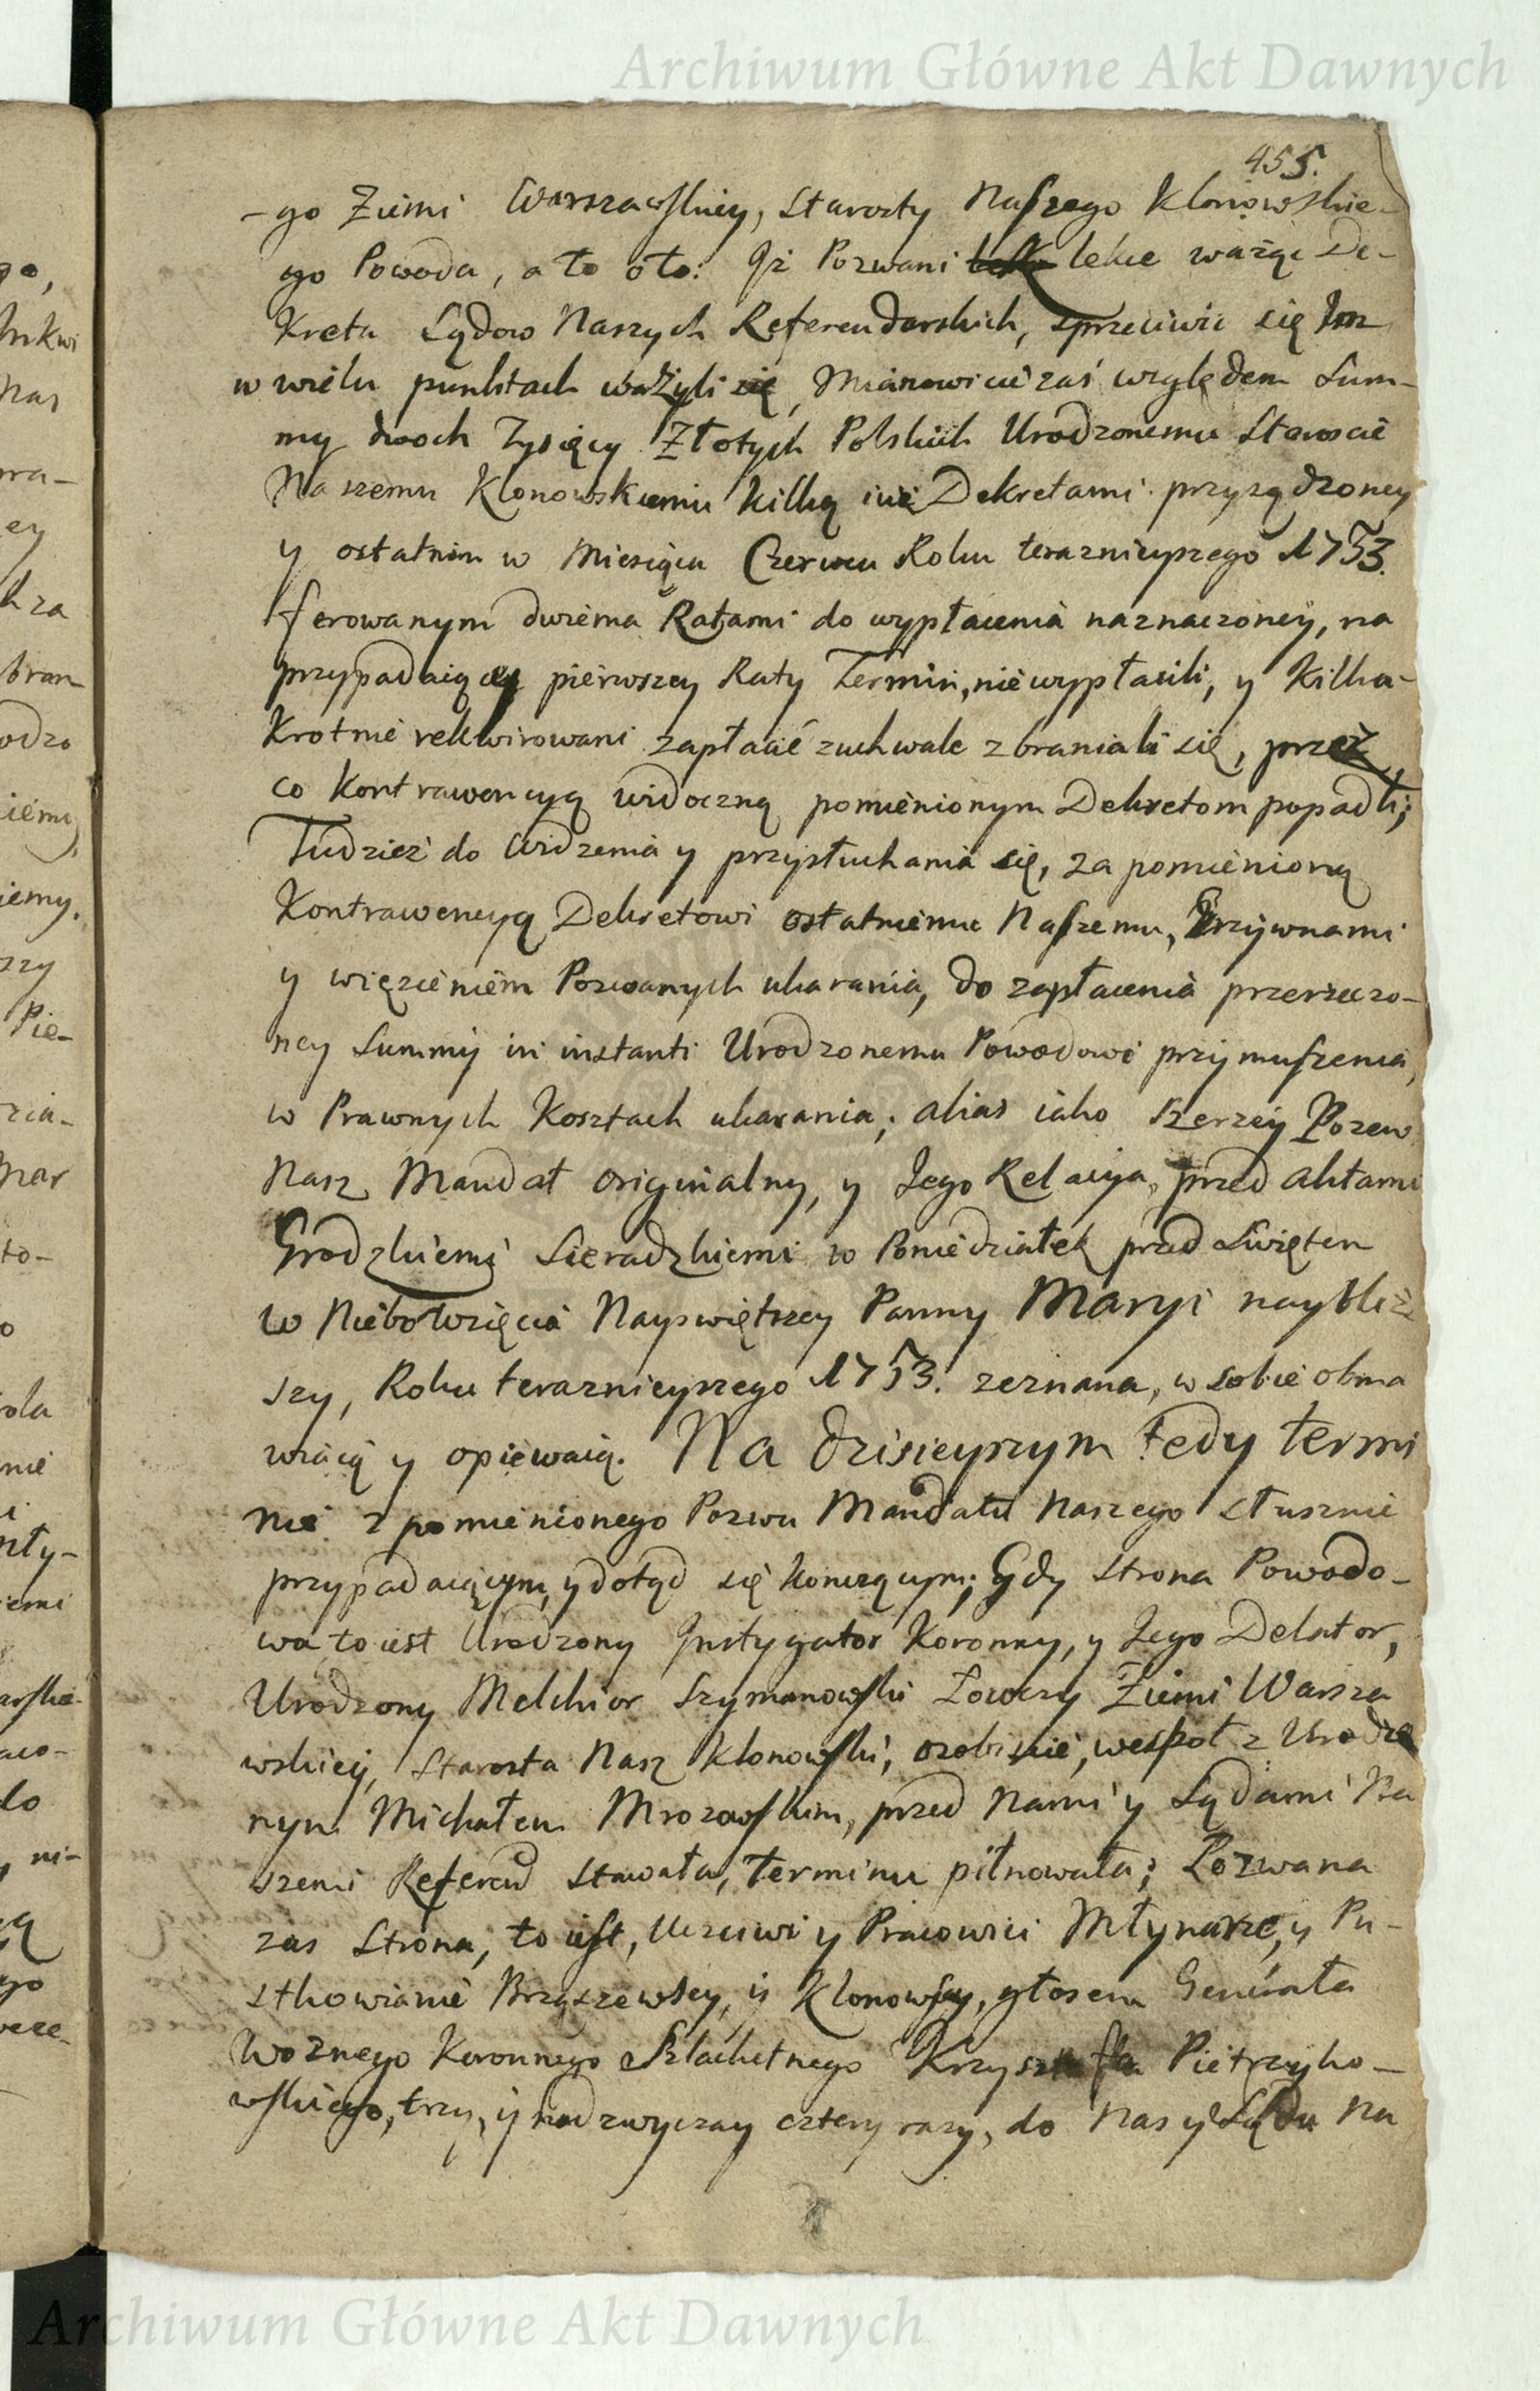 Archiwum Główne Akt Dawnych
455.
-go Ziemi Warszawskiey, Starosty Naszego Klonowskie-
go Powoda, a to oto: Iż Pozwani lekce ważąc De-
kreta Sądow Naszych Referendarskich, sprzeciwic się Im
w wielu punktach ważyli się, Mianowicie zaś względem Sum-
my dwoch Tysięcy Złotych Polskich Urodzonemu Staroscie
Naszemu Klonowskiemu kilką iuż Dekretami przysądzoney
y ostatnim w Miesiącu Czerwcu Roku teraznieyszego 1753.
ferowanym dwiema Ratami do wypłacenia naznaczoney, na
przypadaiący pierwszey Raty Termin, nie wypłacili, y kilka-
krotnie rekwirowani zapłacić zuchwale zbraniali się, przez
co kontrawencyą widoczną pomienionym Dekretom popadli;
Tudzież do widzenia y przysłuchania się, za pomienioną
Kontrawencyą Dekretowi ostatniemu Naszemu, Grzywnami
y więzieniem Pozwanych ukarania, do zapłacenia przerzeczo-
ney Summy in instanti Urodzonemu Powodowi przymuszenia,
w Prawnych Kosztach ukarania; alias iako szerzey Pozew
Nasz Mandat originalny, y Jego Relacya, przed Aktami
Grodzkiemi Sieradzkiemi w Poniedziałek przed Swiętem
w Niebowzięcia Nayswiętszey Panny Maryi naybliż
szy, Roku teraznieyszego 1753. zeznana, w sobie obma
wiaią y opiewaią. Na dzisieyszym tedy termi
nie z pomienionego Pozwu Mandatu Naszego słusznie
przypadaiącym, y dotąd się konczącym; Gdy Strona Powodo-
wa to iest Urodzony Instygator Koronny, y Jego Delator,
Urodzony Melchior Szymanowski Łowczy Ziemi Warsza
wskiey, Starosta Nasz Klonowski, osobiscie, wespoł z Urodzo
nym Michałem Mrozowskim, przed Nami y Sądami Na
szemi Referend stawała, terminu pilnowała; Pozwana
zas Strona, to iest, Uczciwi y Pracowici Młynarze, y Pu-
stkowianie Brąszewscy, y Klonowscy, głosem Generała
Woznego Koronnego Szlachetnego Krzysztofa Pietrzyko-
wskiego, trzy, y nad zwyczay cztery razy, do Nas y Sądu Na
Archiwum Główne Akt Dawnych